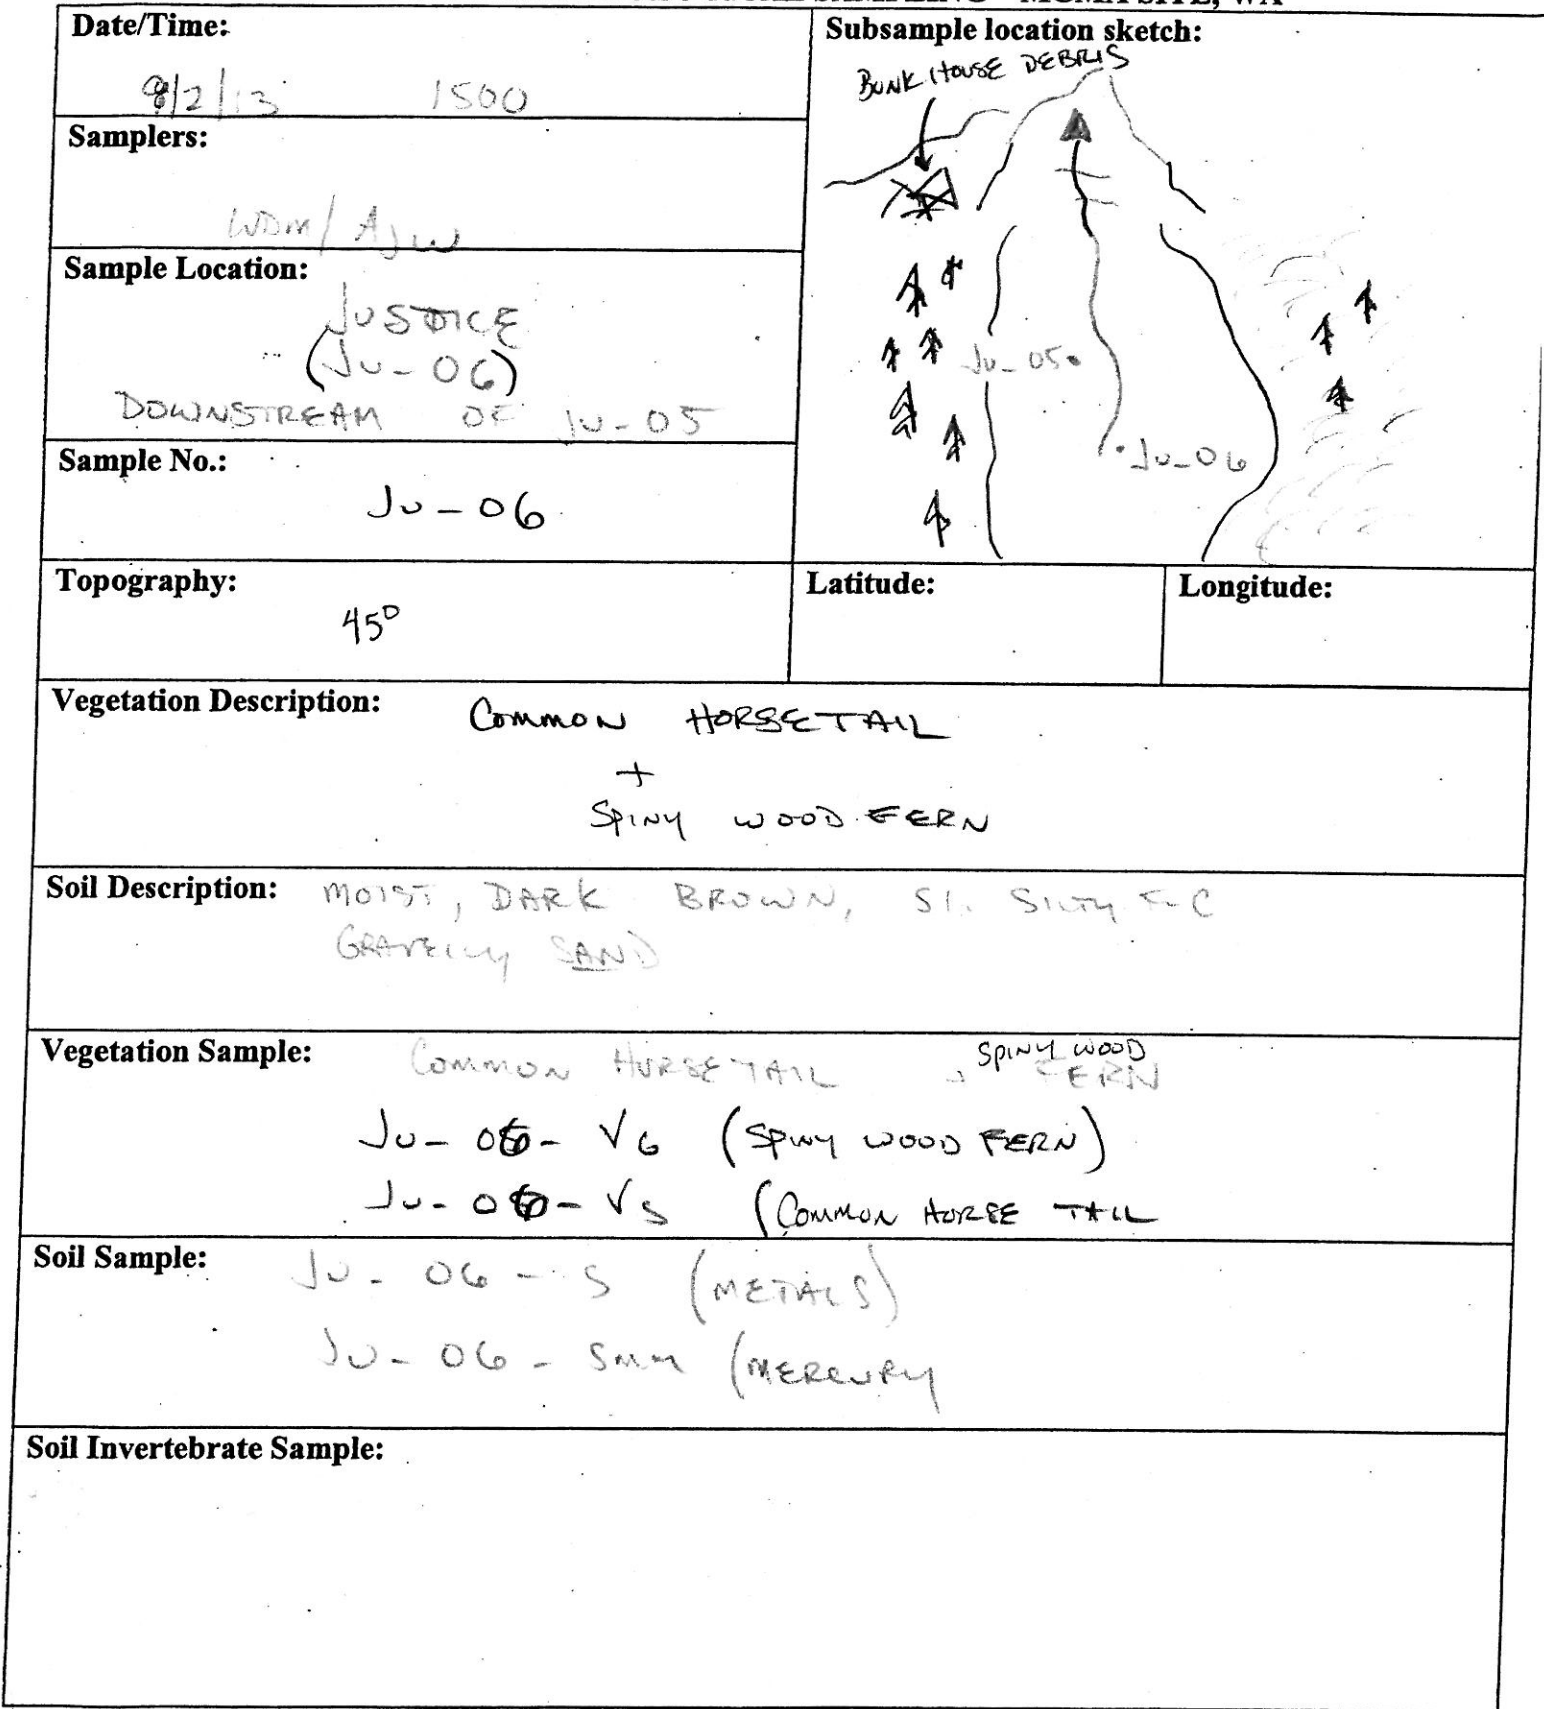 SAMPLING - MCMA SITE, WA
Date/Time:
8/2/13 1500
Samplers:
WDM/AJW
Sample Location:
JUSTICE
(JU-06)
DOWNSTREAM OF JU-05
Sample No.:
JU-06
Subsample location sketch:
BUNKHOUSE DEBRIS
JU-05
JU-06
Topography:
45°
Latitude:
Longitude:
Vegetation Description: COMMON HORSETAIL
+
SPINY WOOD FERN
Soil Description: MOIST, DARK BROWN, Sl. SILTY F-C
GRAVELLY SAND
Vegetation Sample: COMMON HORSETAIL, SPINY WOOD FERN
JU-06-VG (SPINY WOOD FERN)
JU-06-VS (COMMON HORSE TAIL
Soil Sample: JU-06-S (METALS)
JU-06-SMM (MERCURY
Soil Invertebrate Sample: